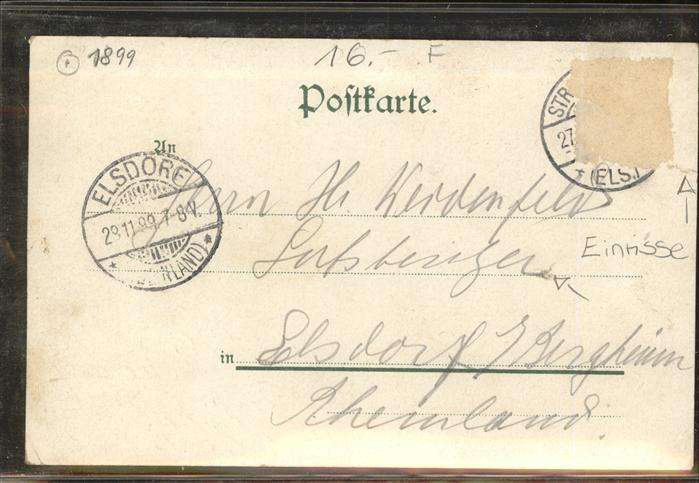 1899
16.- F
Postkarte.
An
ELSDORF
28.11.99. 7-8 V.
(RHEINLAND)
STR
27
* (ELS.)
Herrn
Einrisse
in Elsdorf / Bergheim
Rheinland.